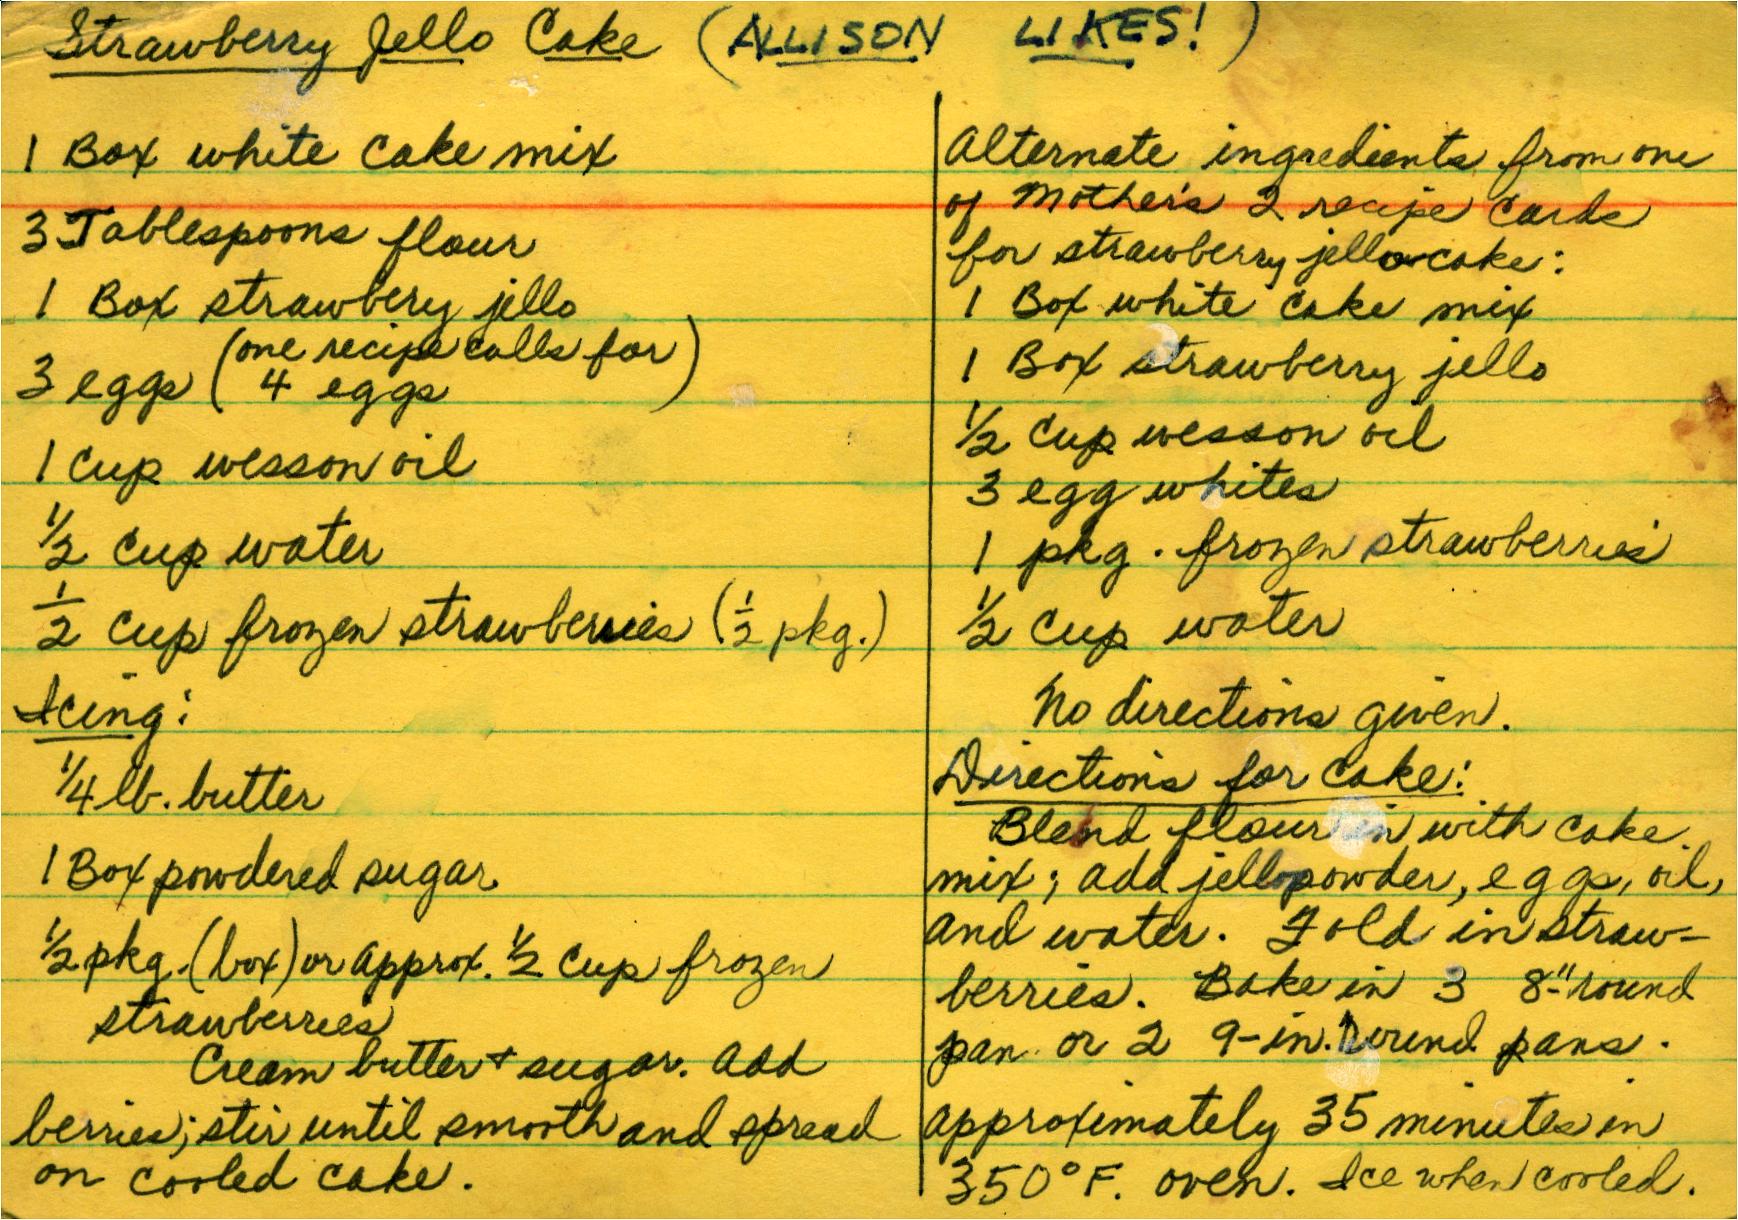 Strawberry Jello Cake (ALLISON LIKES!)
1 Box white cake mix
3 Tablespoons flour
1 Box strawbery jello
(one recipe calls for
3 eggs ( 4 eggs )
1 cup wesson oil
1/2 cup water
1/2 cup frozen strawberries (1/2 pkg.)
Icing:
1/4 lb. butter
1 Box powdered sugar
1/2 pkg. (box) or approx. 1/2 cup frozen
strawberries
Cream butter + sugar. Add
berries; stir until smooth and spread
on cooled cake.
Alternate ingredients from one
of Mother's 2 recipe cards
for strawberry jello cake:
1 Box white cake mix
1 Box strawberry jello
1/2 cup wesson oil
3 egg whites
1 pkg. frozen strawberries
1/2 cup water
No directions given.
Directions for cake:
Blend flour in with cake
mix; add jello powder, eggs, oil,
and water. Fold in straw-
berries. Bake in 3 8" round
pan or 2 9-in. round pans.
approximately 35 minutes in
350°F. oven. Ice when cooled.